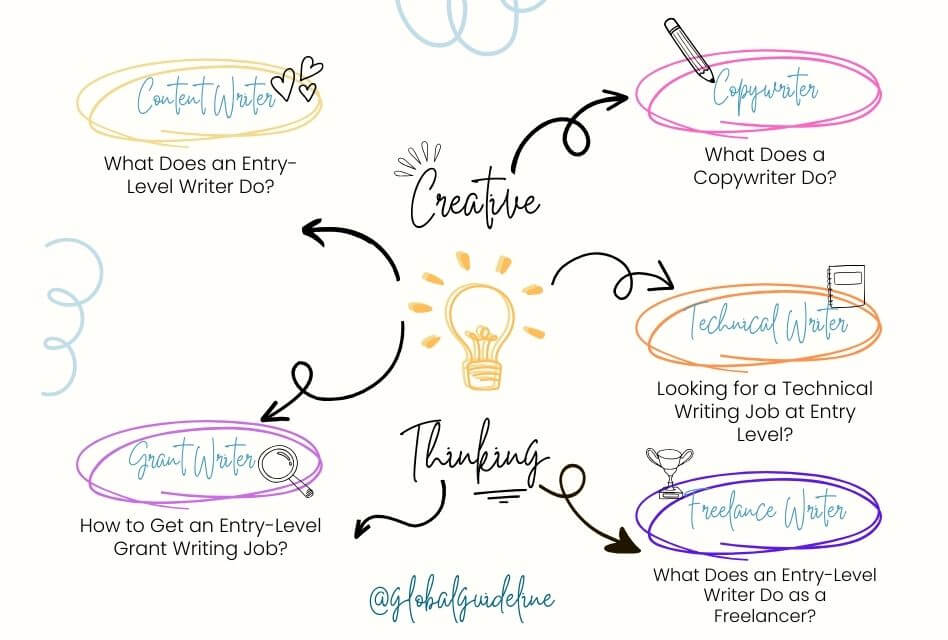 Content Writer
What Does an Entry-
Level Writer Do?
Copywriter
What Does a
Copywriter Do?
Creative
Technical Writer
Looking for a Technical
Writing Job at Entry
Level?
Thinking
Grant Writer
How to Get an Entry-Level
Grant Writing Job?
Freelance Writer
What Does an Entry-Level
Writer Do as a
Freelancer?
@globalguideline